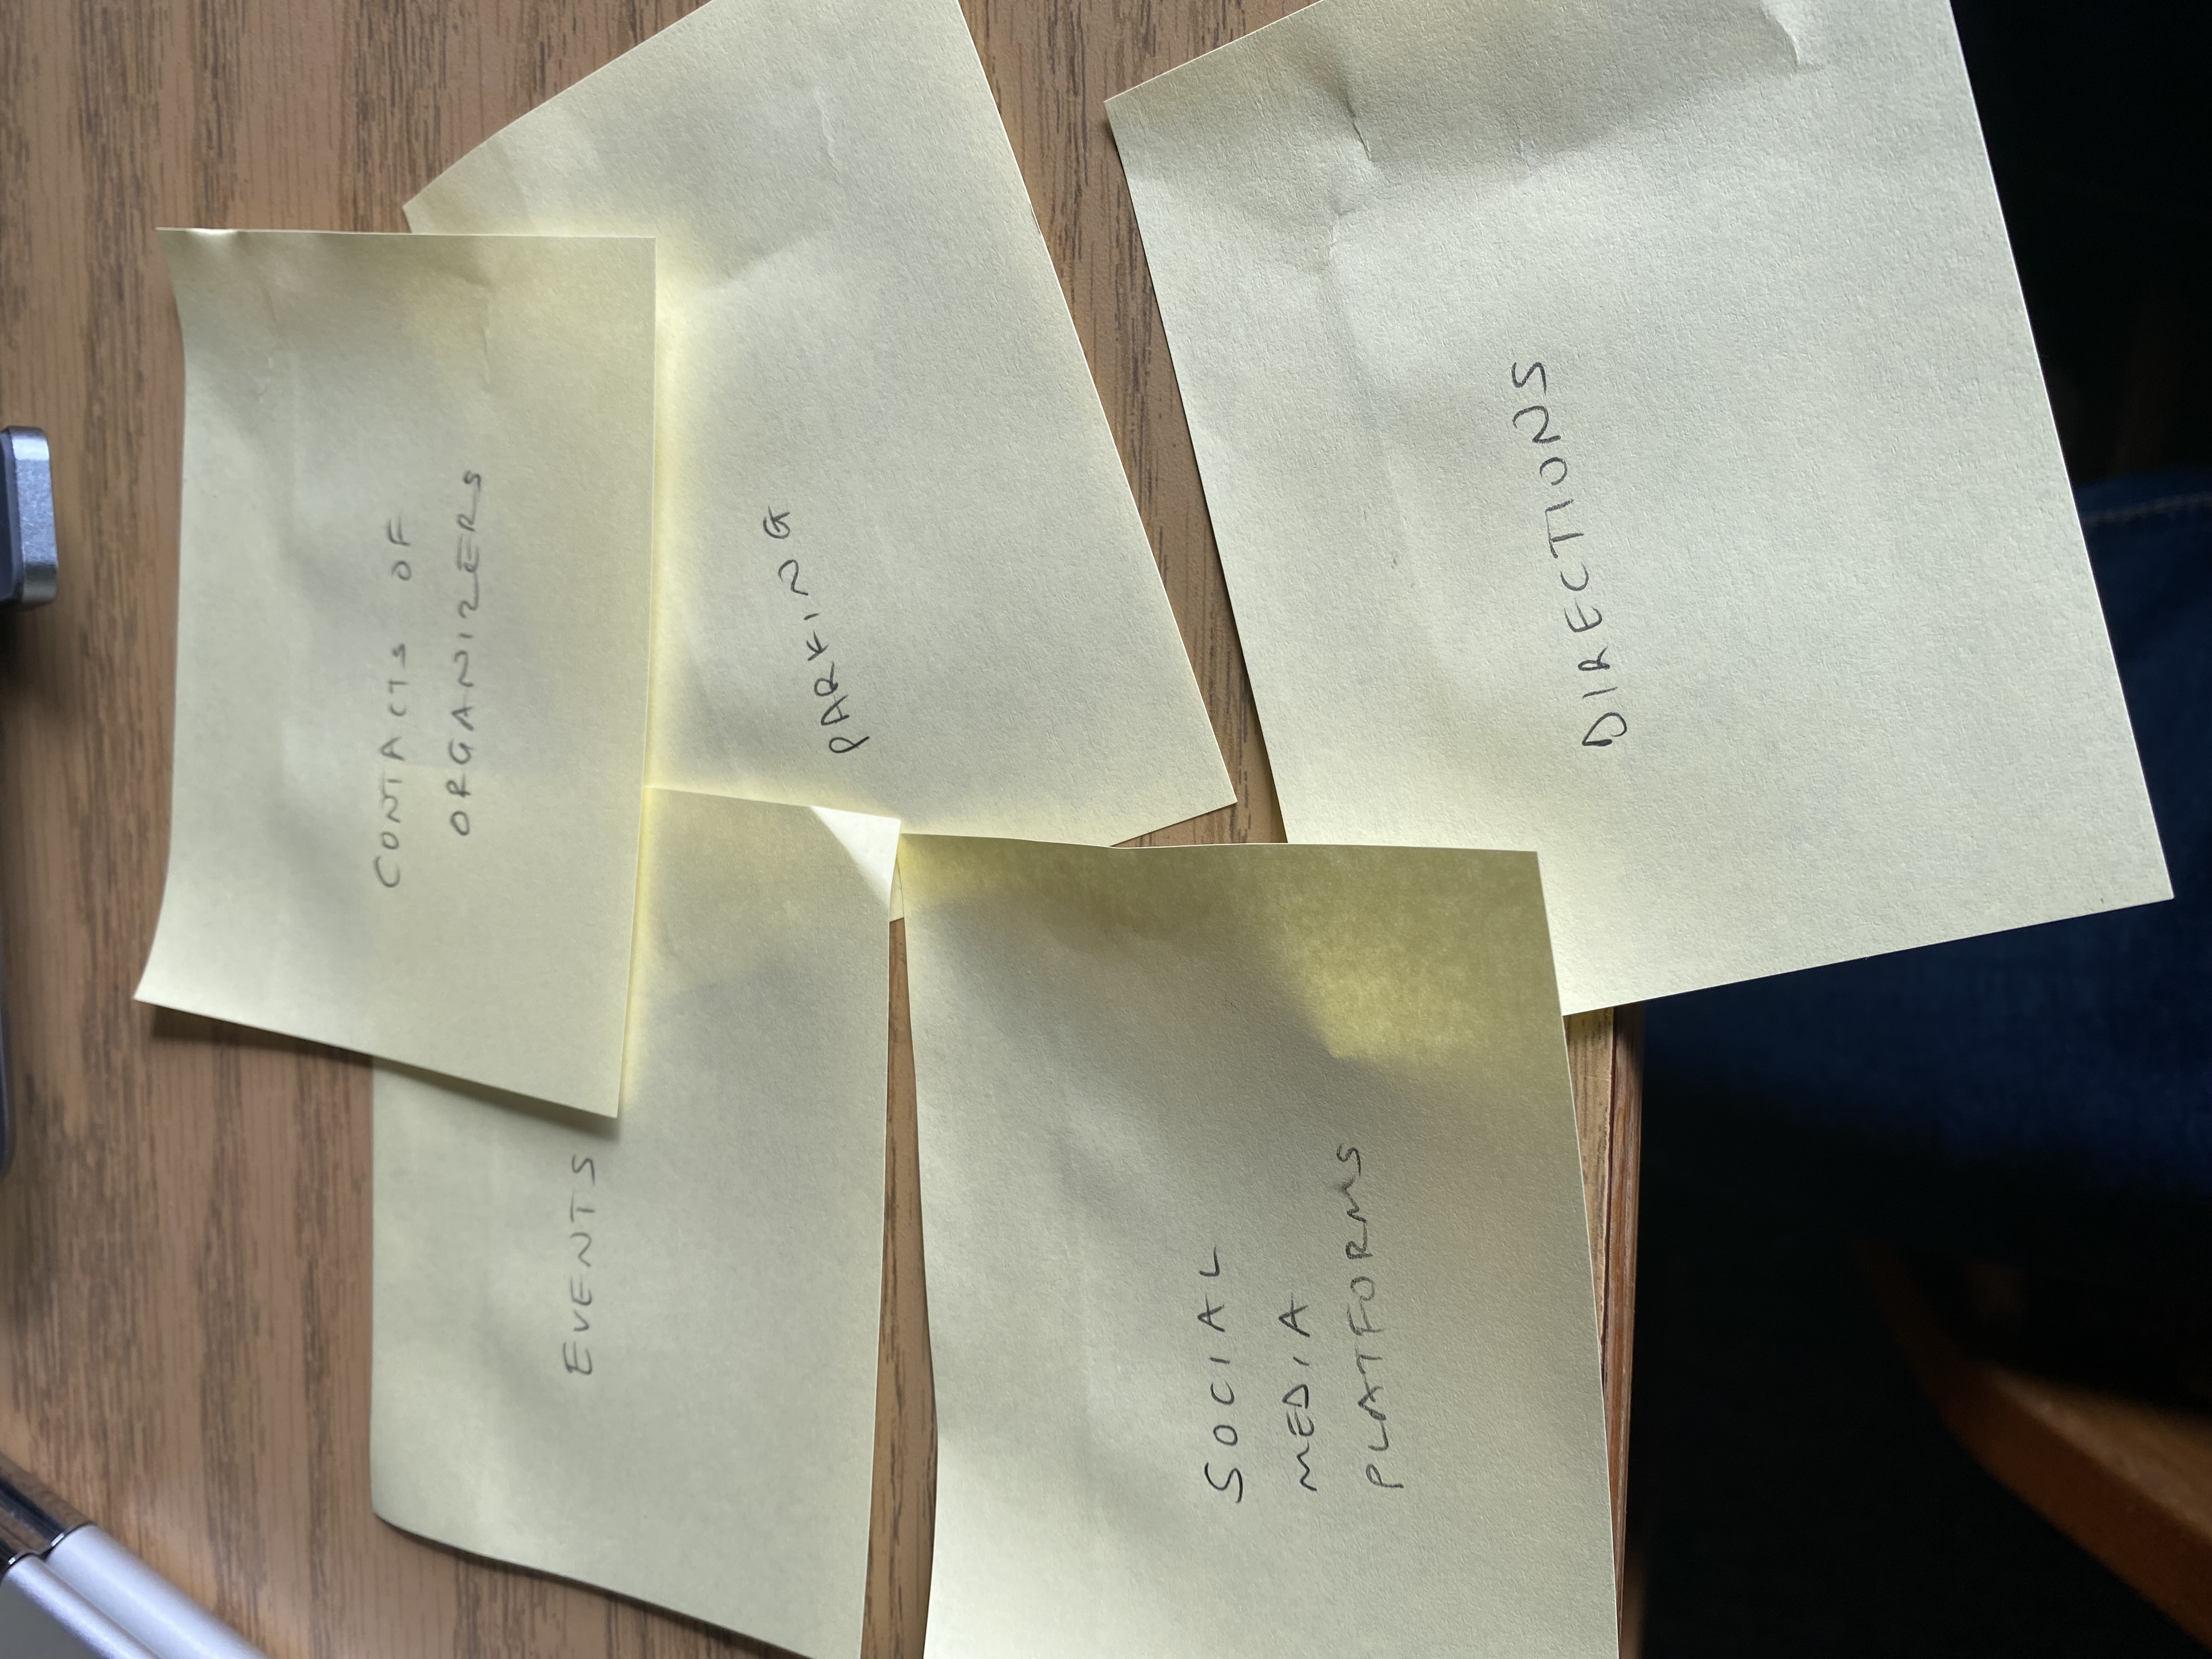 CONTACTS OF
ORGANIZERS
EVENTS
PARKING
SOCIAL
MEDIA
PLATFORMS
DIRECTIONS